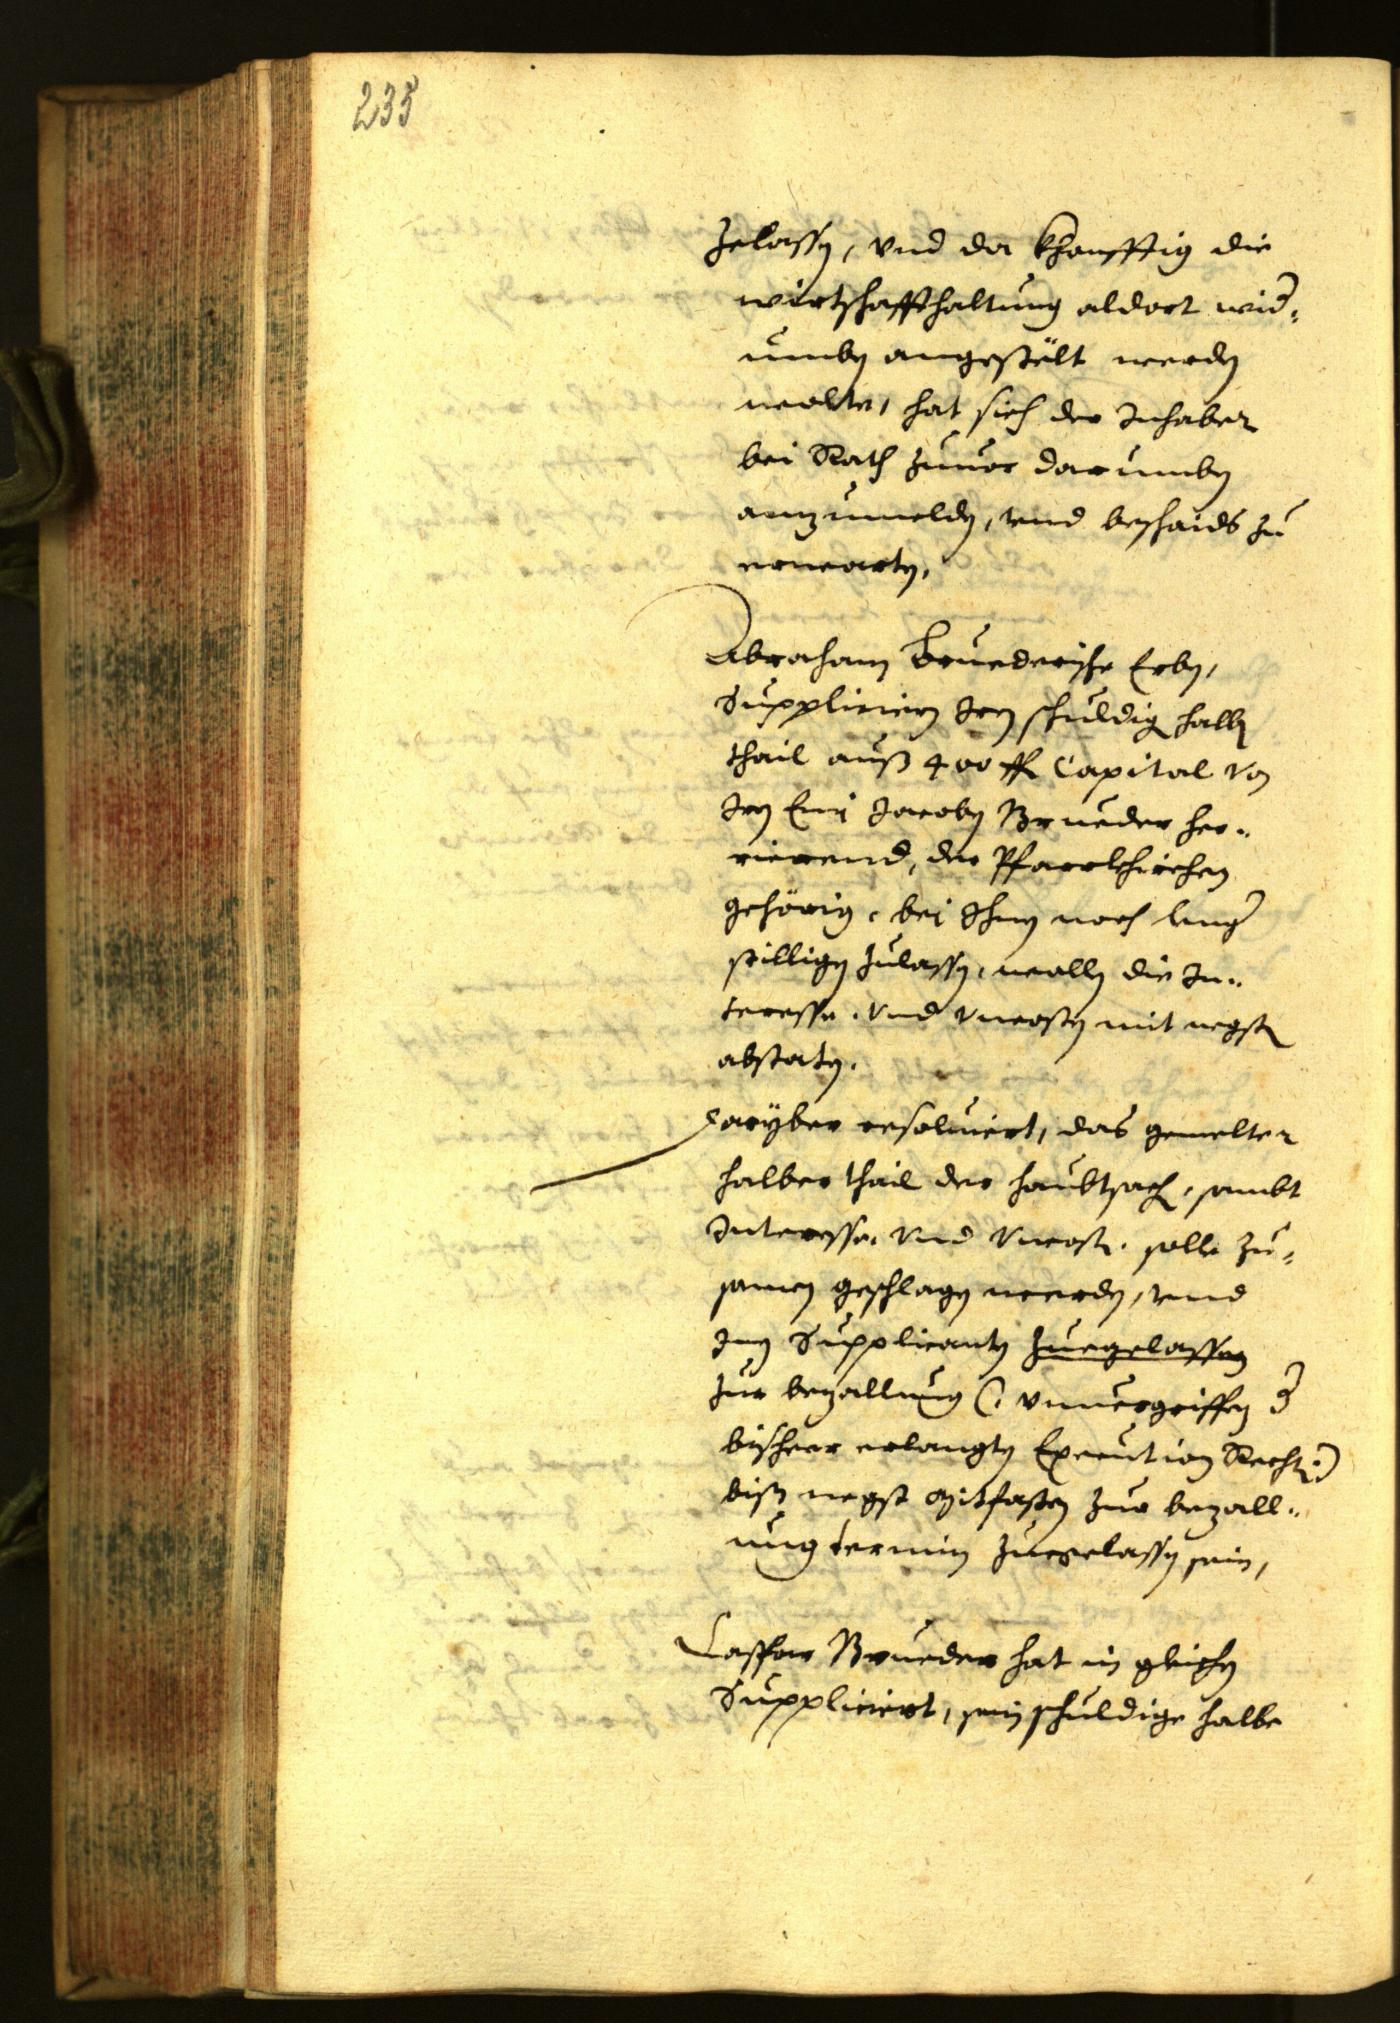 235
zelassen, vnd da Khonfftig die
wirtschaffthaltung aldort wid=
umben angestölt werden
wolte, hat sich der Inhaber
bei Rath zuuor darumben
anzumelden, vnd beschaids zu
erwarten,
Abraham Bruederische Erben,
Supplicieren Iren schuldig halben
thail auß 400 fl Capital von
Iren Eni Jacoben Brueder her=
rierend, der Pfarrkhirchen
gehörig, bei Ihnen noch lenger
stilligen zulassen, wollen die In=
teresse, Vnd Vncosten mit negsten
abstaten.
Darÿber resoluiert, das gemelter
halber thail der haubtsach, sambt
Interesse, Vnd Vncosten, solle zu=
samen geschlagen werden, vnd
Inen Supplicanten zuegelassen
zur bezallung (: vnuergriffen der
bisheer erlangten Execution Rechten :)
biß negst Mitfasten zur bezall=
ung termin zuegelassen sein,
Casspar Brueder hat in gleichen
Suppliciert, sein schuldige halbe